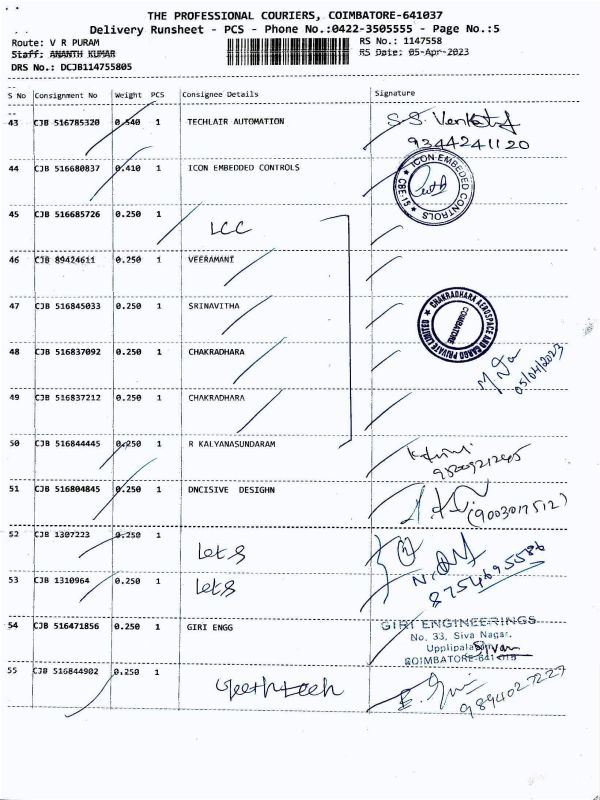 THE PROFESSIONAL COURIERS, COIMBATORE-641037
Delivery Runsheet - PCS - Phone No.:0422-3505555 - Page No.:5
Route: V R PURAM RS No.: 1147558
Staff: ANANTH KUMAR RS Date: 05-Apr-2023
DRS No.: DCJB114755805
S No Consignment No Weight PCS Consignee Details Signature
43 CJB 516785320 0.540 1 TECHLAIR AUTOMATION
9344241120
44 CJB 516680837 0.410 1 ICON EMBEDDED CONTROLS
ICON EMBEDED CONTROLS CBE-15
45 CJB 516685726 0.250 1
LCC
46 CJB 89424611 0.250 1 VEERAMANI
47 CJB 516845033 0.250 1 SRINAVITHA
CHAKRADHARA AEROSPACE AND CARGO PRIVATE LIMITED
COIMBATORE
48 CJB 516837092 0.250 1 CHAKRADHARA
05/04/2023
49 CJB 516837212 0.250 1 CHAKRADHARA
50 CJB 516844445 0.250 1 R KALYANASUNDARAM
51 CJB 516804845 0.250 1 DNCISIVE DESIGHN
(9003017512)
52 CJB 1307223 0.250 1 Lets
53 CJB 1310964 0.250 1 Lets
8754695586
54 CJB 516471856 0.250 1 GIRI ENGG
GIRI ENGINEERINGS
No. 33, Siva Nagar,
COIMBATORE-641 015
55 CJB 516844902 0.250 1
9894027227